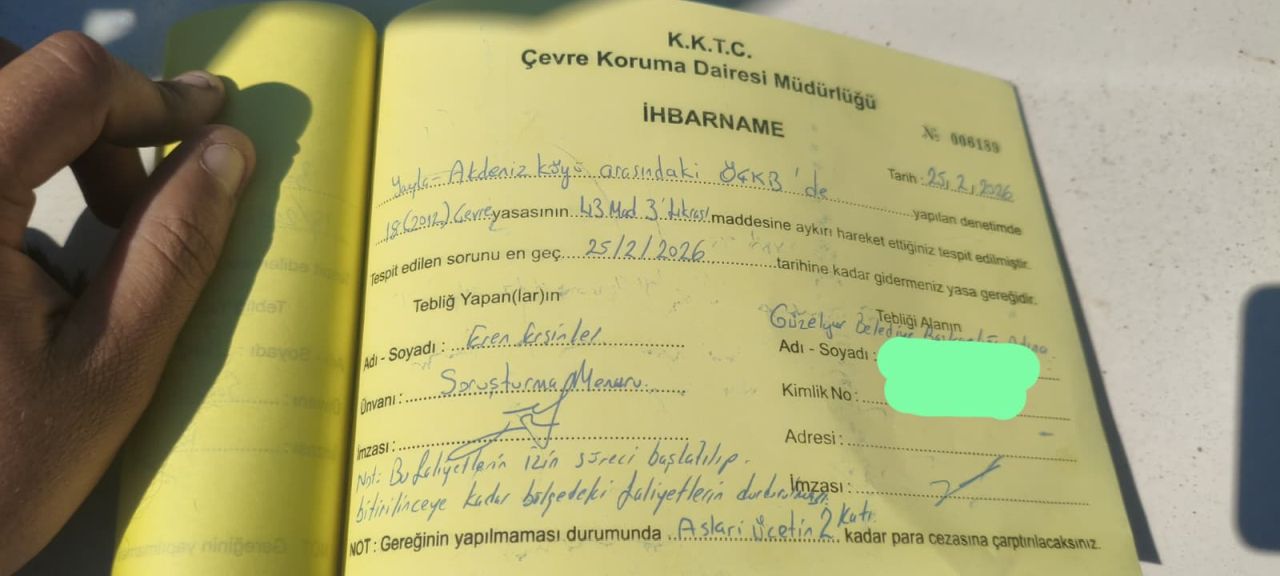 K.K.T.C.
Çevre Koruma Dairesi Müdürlüğü
İHBARNAME
№ 006189
Tarih : 25,2,2026
Yayla - Akdeniz köyü arasındaki ÖÇKB'de yapılan denetimde
18(2012) Çevre yasasının 43 Mad 3'fıkrası maddesine aykırı hareket ettiğiniz tespit edilmiştir.
Tespit edilen sorunu en geç 25/2/2026 tarihine kadar gidermeniz yasa gereğidir.
Tebliğ Yapan(lar)ın
Tebliği Alanın
Güzelyurt Belediye Adına
Adı - Soyadı : Eren
Adı - Soyadı :
Ünvanı : Soruşturma Memuru
Kimlik No :
Adresi :
İmzası :
İmzası :
Not: Bu faliyetlerin izin süreci başlatılıp.
bitirilinceye kadar bölgedeki faliyetlerin
NOT : Gereğinin yapılmaması durumunda Asgari ücretin 2 katı kadar para cezasına çarptırılacaksınız.